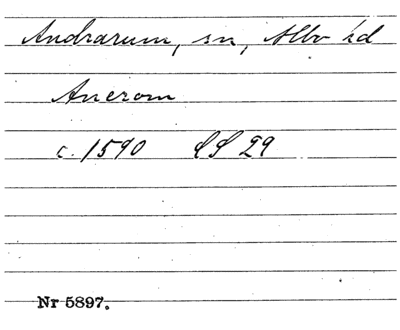 Andrarum, sn, Albo hd
Anerom
c. 1590 LS 29
Nr 5897.